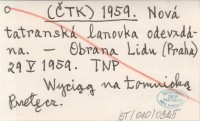 (ČTK) 1959. Nová
tatranská lanovka odevzdá-
na. – Obrana Lidu (Praha)
29 V 1959. TNP
Wyciąg na Łomnicką
Przełęcz.
BT/010/0845